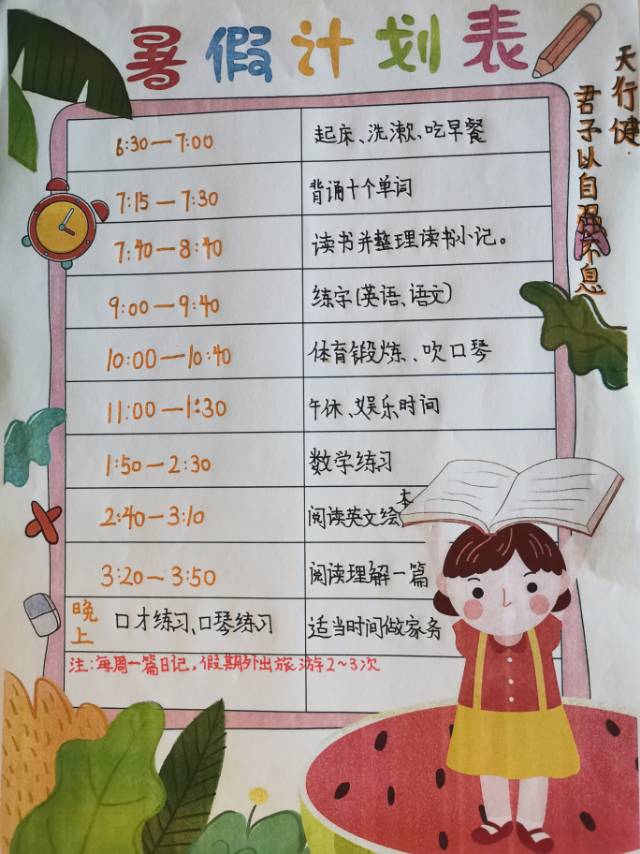 暑假计划表
天行健
君子以自强不息
6:30—7:00 起床、洗漱、吃早餐
7:15—7:30 背诵十个单词
7:40—8:40 读书并整理读书小记。
9:00—9:40 练字(英语、语文)
10:00—10:40 体育锻炼、吹口琴
11:00—1:30 午休、娱乐时间
1:50—2:30 数学练习
2:40—3:10 阅读英文绘本
3:20—3:50 阅读理解一篇
晚上 口才练习、口琴练习 适当时间做家务
注:每周一篇日记,假期外出旅游2~3次